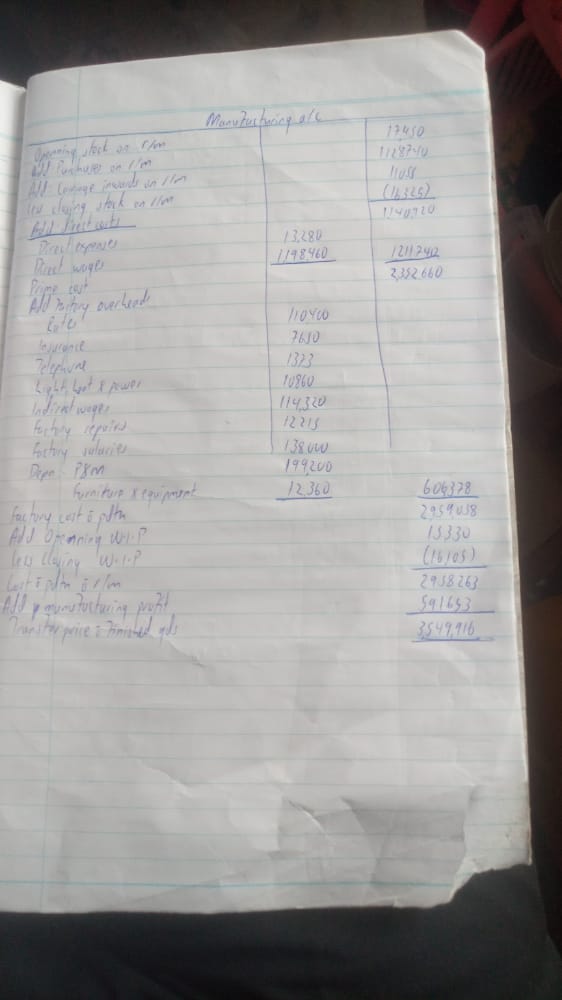 Manufacturing a/c
Openning stock on r/m 17450
Add Purchases on r/m 1128740
Add Carriage inwards on r/m 11055
Less closing stock on r/m (16325)
1140920
Add Direct costs
Direct expenses 13,280
Direct wages 1198,460 1211740
Prime cost 2,352,660
Add Factory overheads
Rates 110400
Insurance 7650
Telephone 1373
Light, heat & power 10860
Indirect wages 114,320
Factory repairs 12215
Factory salaries 138000
Depn: P&M 199,200
Furniture & equipment 12,360 606,378
Factory cost o pdtn 2959038
Add Openning W-I-P 15330
Less Closing W-I-P (16105)
Cost o pdtn o r/m 2958263
Add manufacturing profit 591653
Transfer price o finished gds 3,549,916